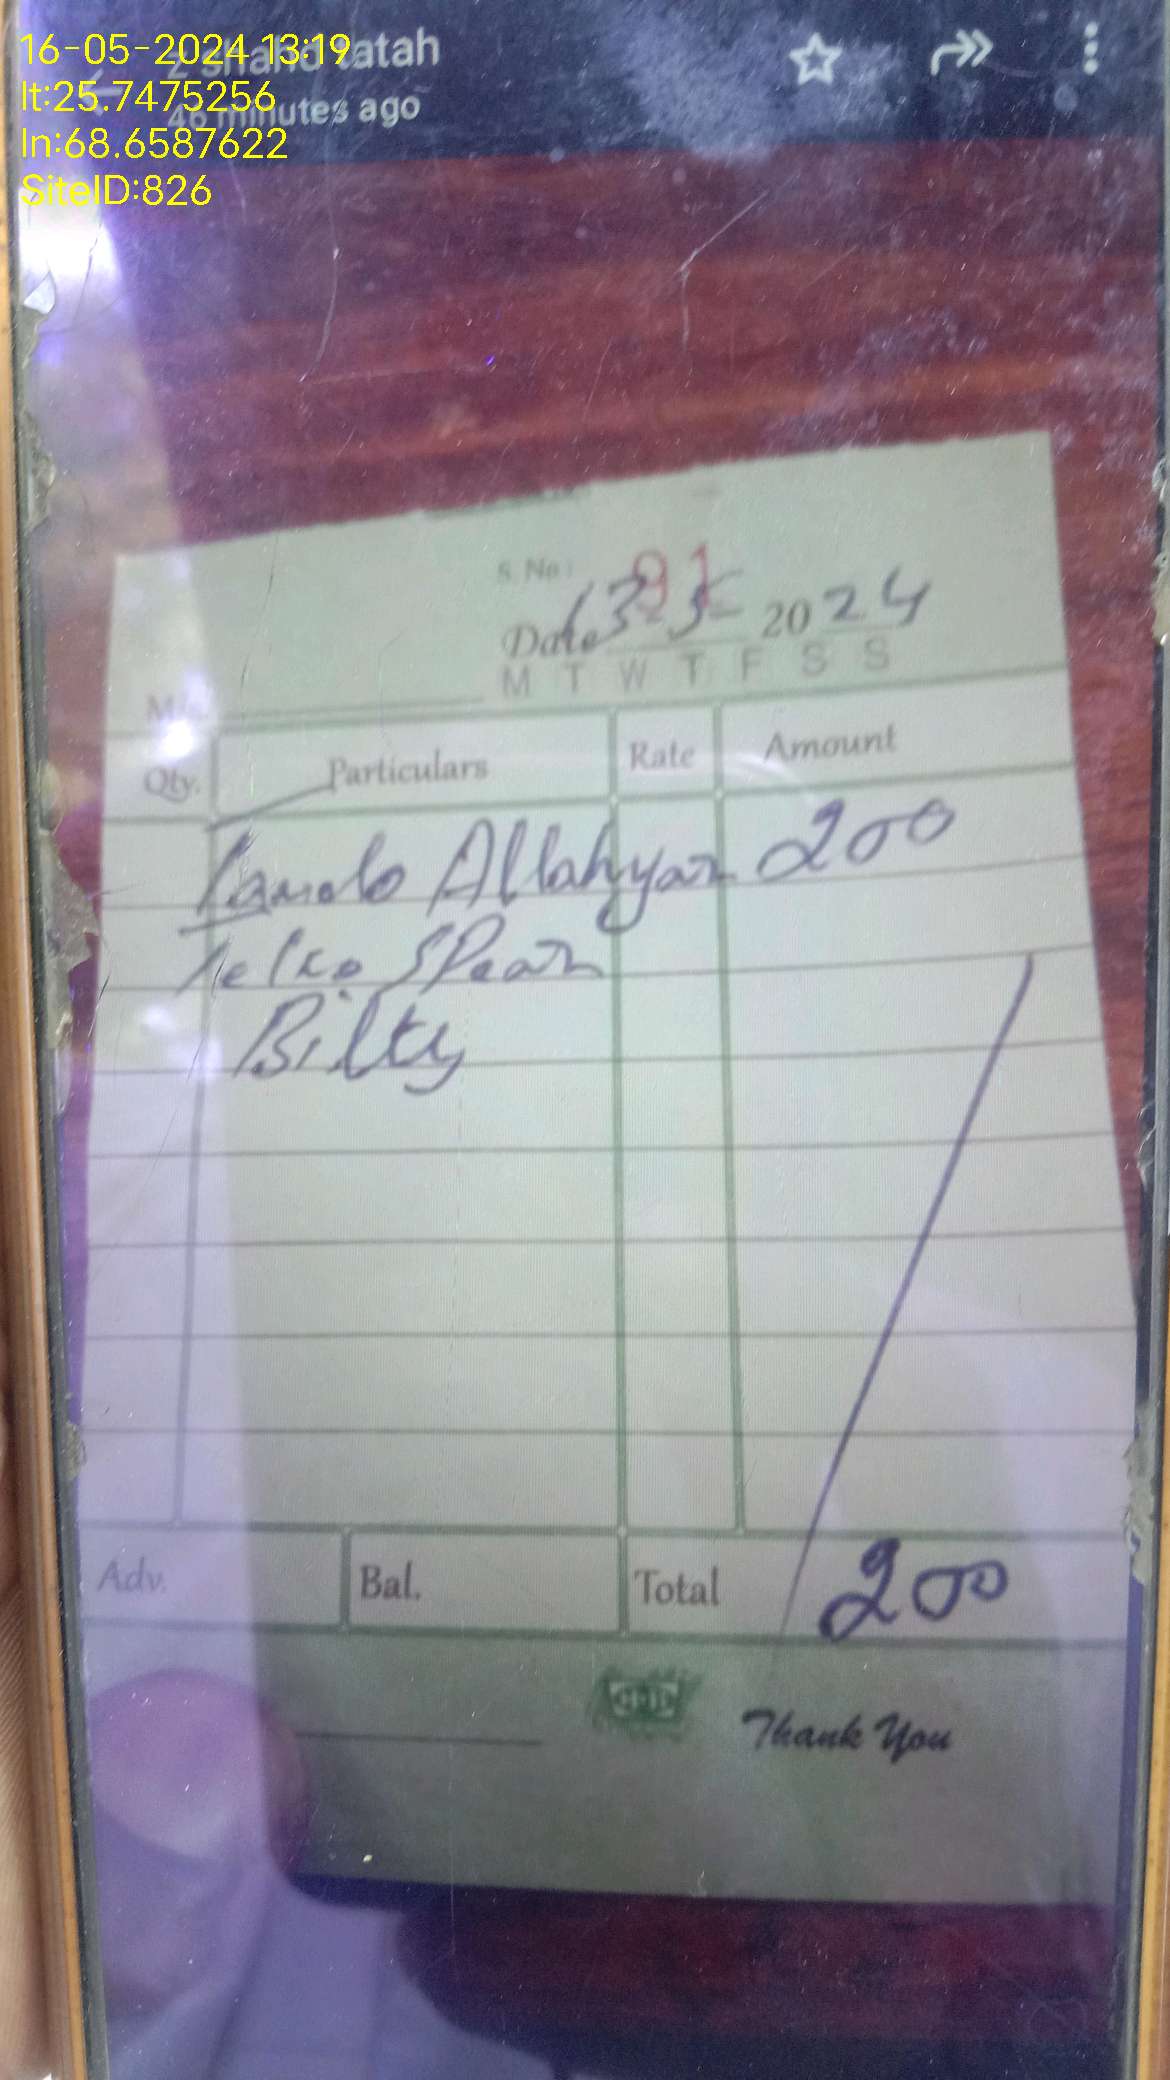 16-05-2024 13:19
lt:25.7475256
ln:68.6587622
SiteID:826
46 minutes ago
S. No: 91
Date 13-5- 2024
M T W T F S S
Qty. Particulars Rate Amount
Tando Allahyar 200
Spear
Bilty
Adv. Bal. Total 200
Thank You